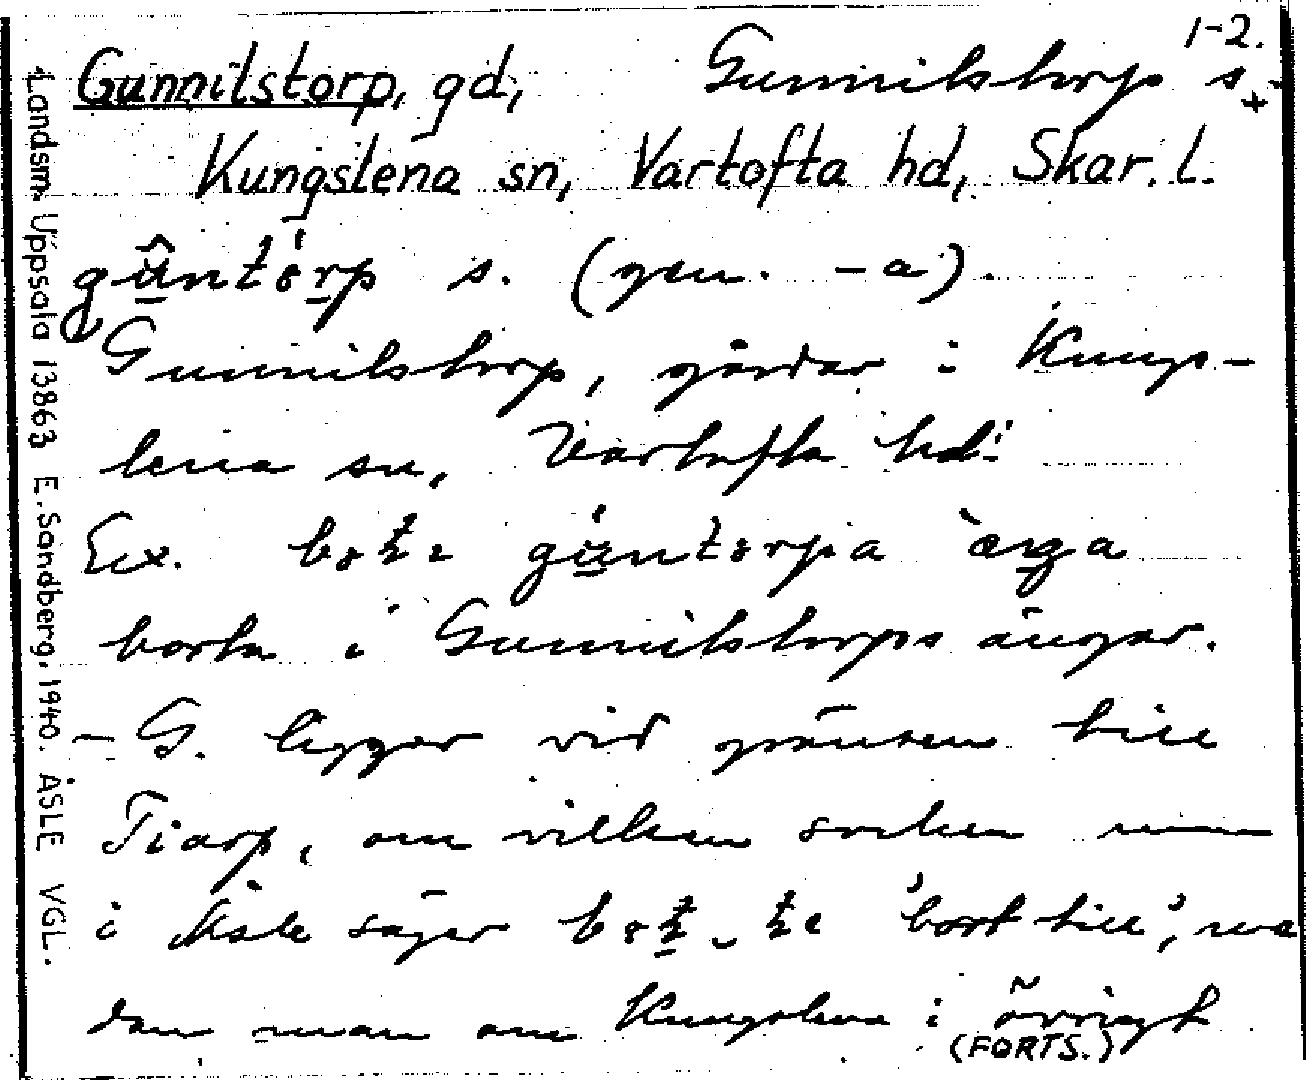 1-2.
Gunnilstorp, gd, Gunnilstorp s.
+
Kungslena sn, Vartofta hd, Skar. l.
s. (gen. -a).
Gunnilstorp, gårdar i Kungs-
lena sn, Vartofta hd.
Ex.
borta i Gunnilstorps ängar.
- G. ligger vid gränsen till
Tiarp, om vilken socken man
i Åsle säger 'bort till', me
dan man om Kungslena i övrigt
(FORTS.)
Landsm. Uppsala 13863 E. Sandberg, 1940. ÅSLE VGL.